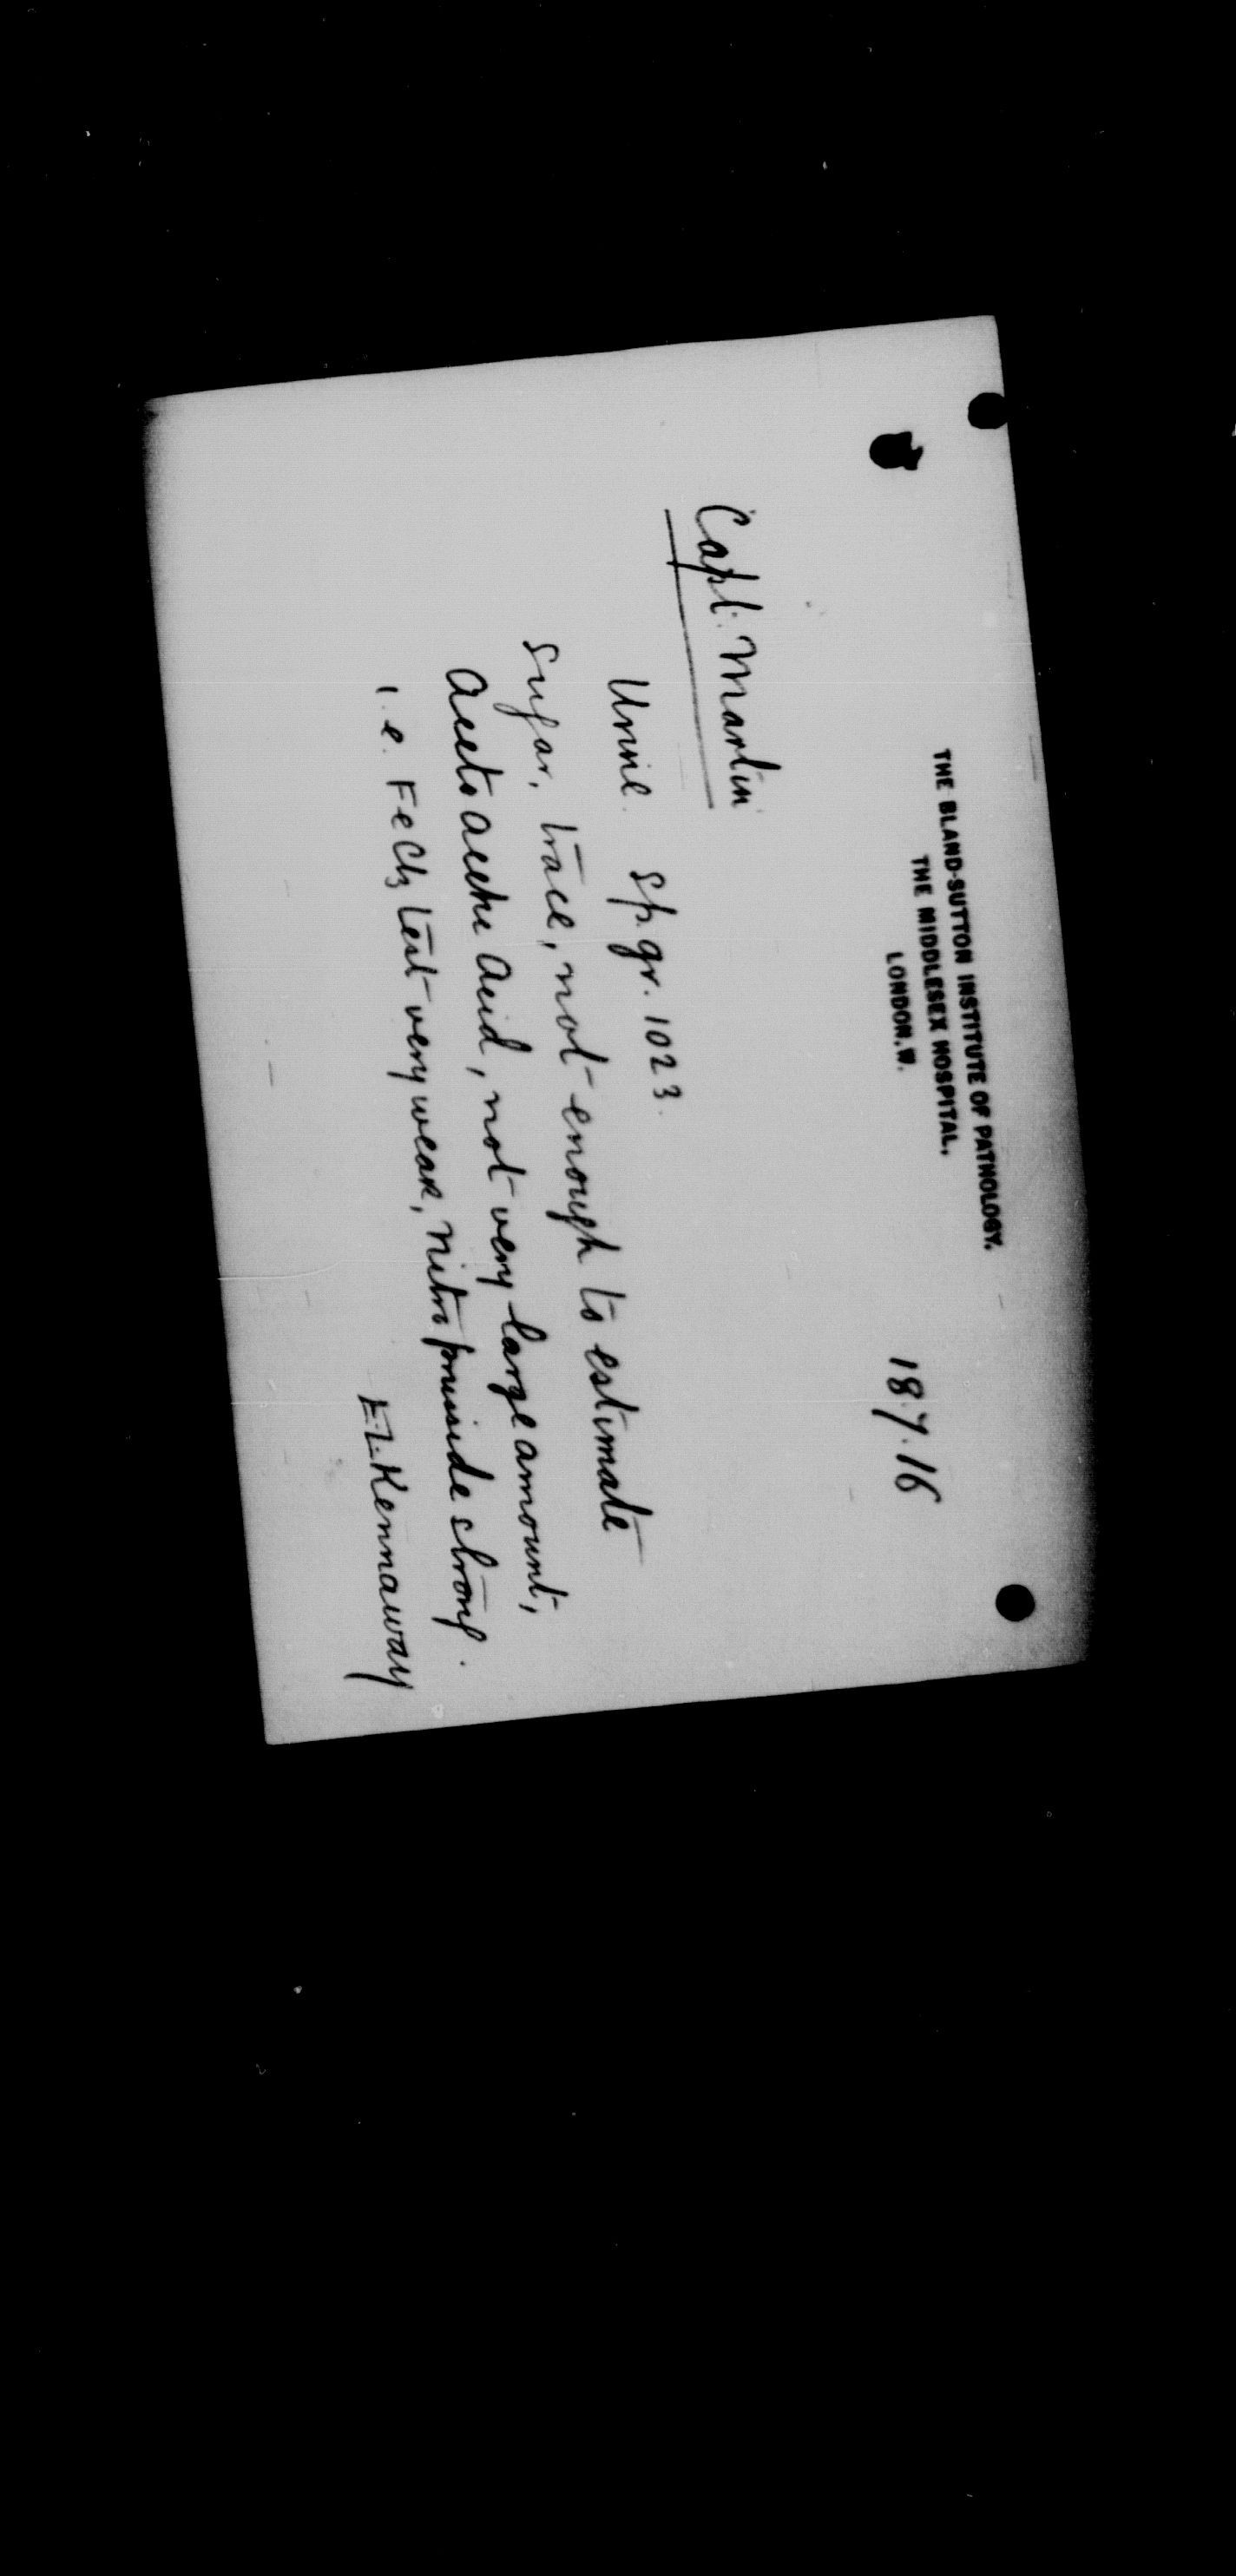 THE BLAND-SUTTON INSTITUTE OF PATHOLOGY.
THE MIDDLESEX HOSPITAL.
LONDON, W.
18.7.16
Capt. Martin
Urine. Sp. gr. 1023.
Sugar, trace, not enough to estimate
Aceto acetic acid, not very large amount,
i.e. FeCl3 test very weak, nitroprusside strong.
E.L. Kennaway